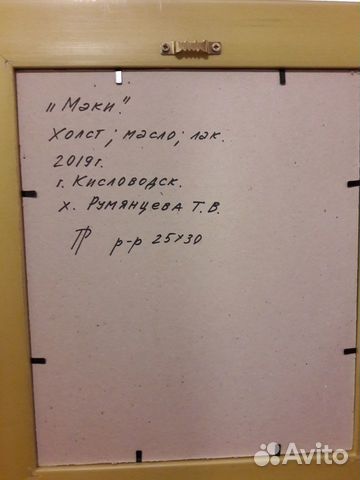 „Маки."
Холст; масло; лак.
2019г.
г. Кисловодск.
х. Румянцева Т.В.
р-р 25х30
Avito